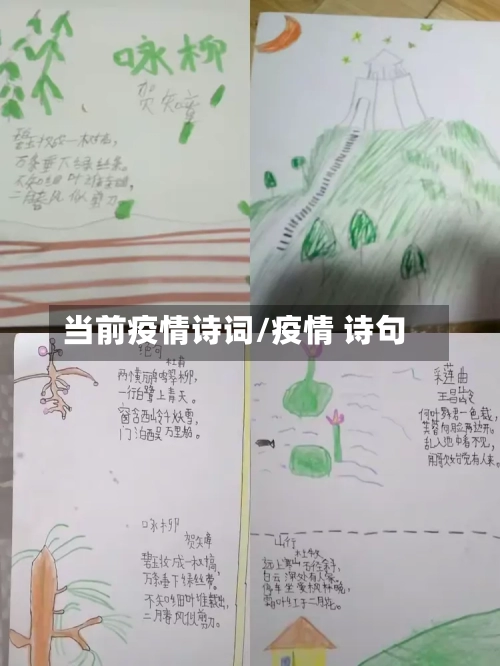 咏柳
贺知章
碧玉妆成一树高,
万条垂下绿丝绦。
不知细叶谁裁出,
二月春风似剪刀
当前疫情诗词/疫情 诗句
绝句
杜甫
两个黄鹂鸣翠柳,
一行白鹭上青天。
窗含西岭千秋雪,
门泊西吴万里船。
咏柳
贺知章
碧玉妆成一树高,
万条垂下绿丝绦。
不知细叶谁裁出,
二月春风似剪刀。
采莲曲
王昌龄
荷叶罗君一色裁,
芙蓉向脸两边开。
乱入池中看不见,
闻歌始觉有人来。
山行
杜牧
远上寒山石径斜,
白云深处有人家。
停车坐爱枫林晚,
霜叶红于二月花。